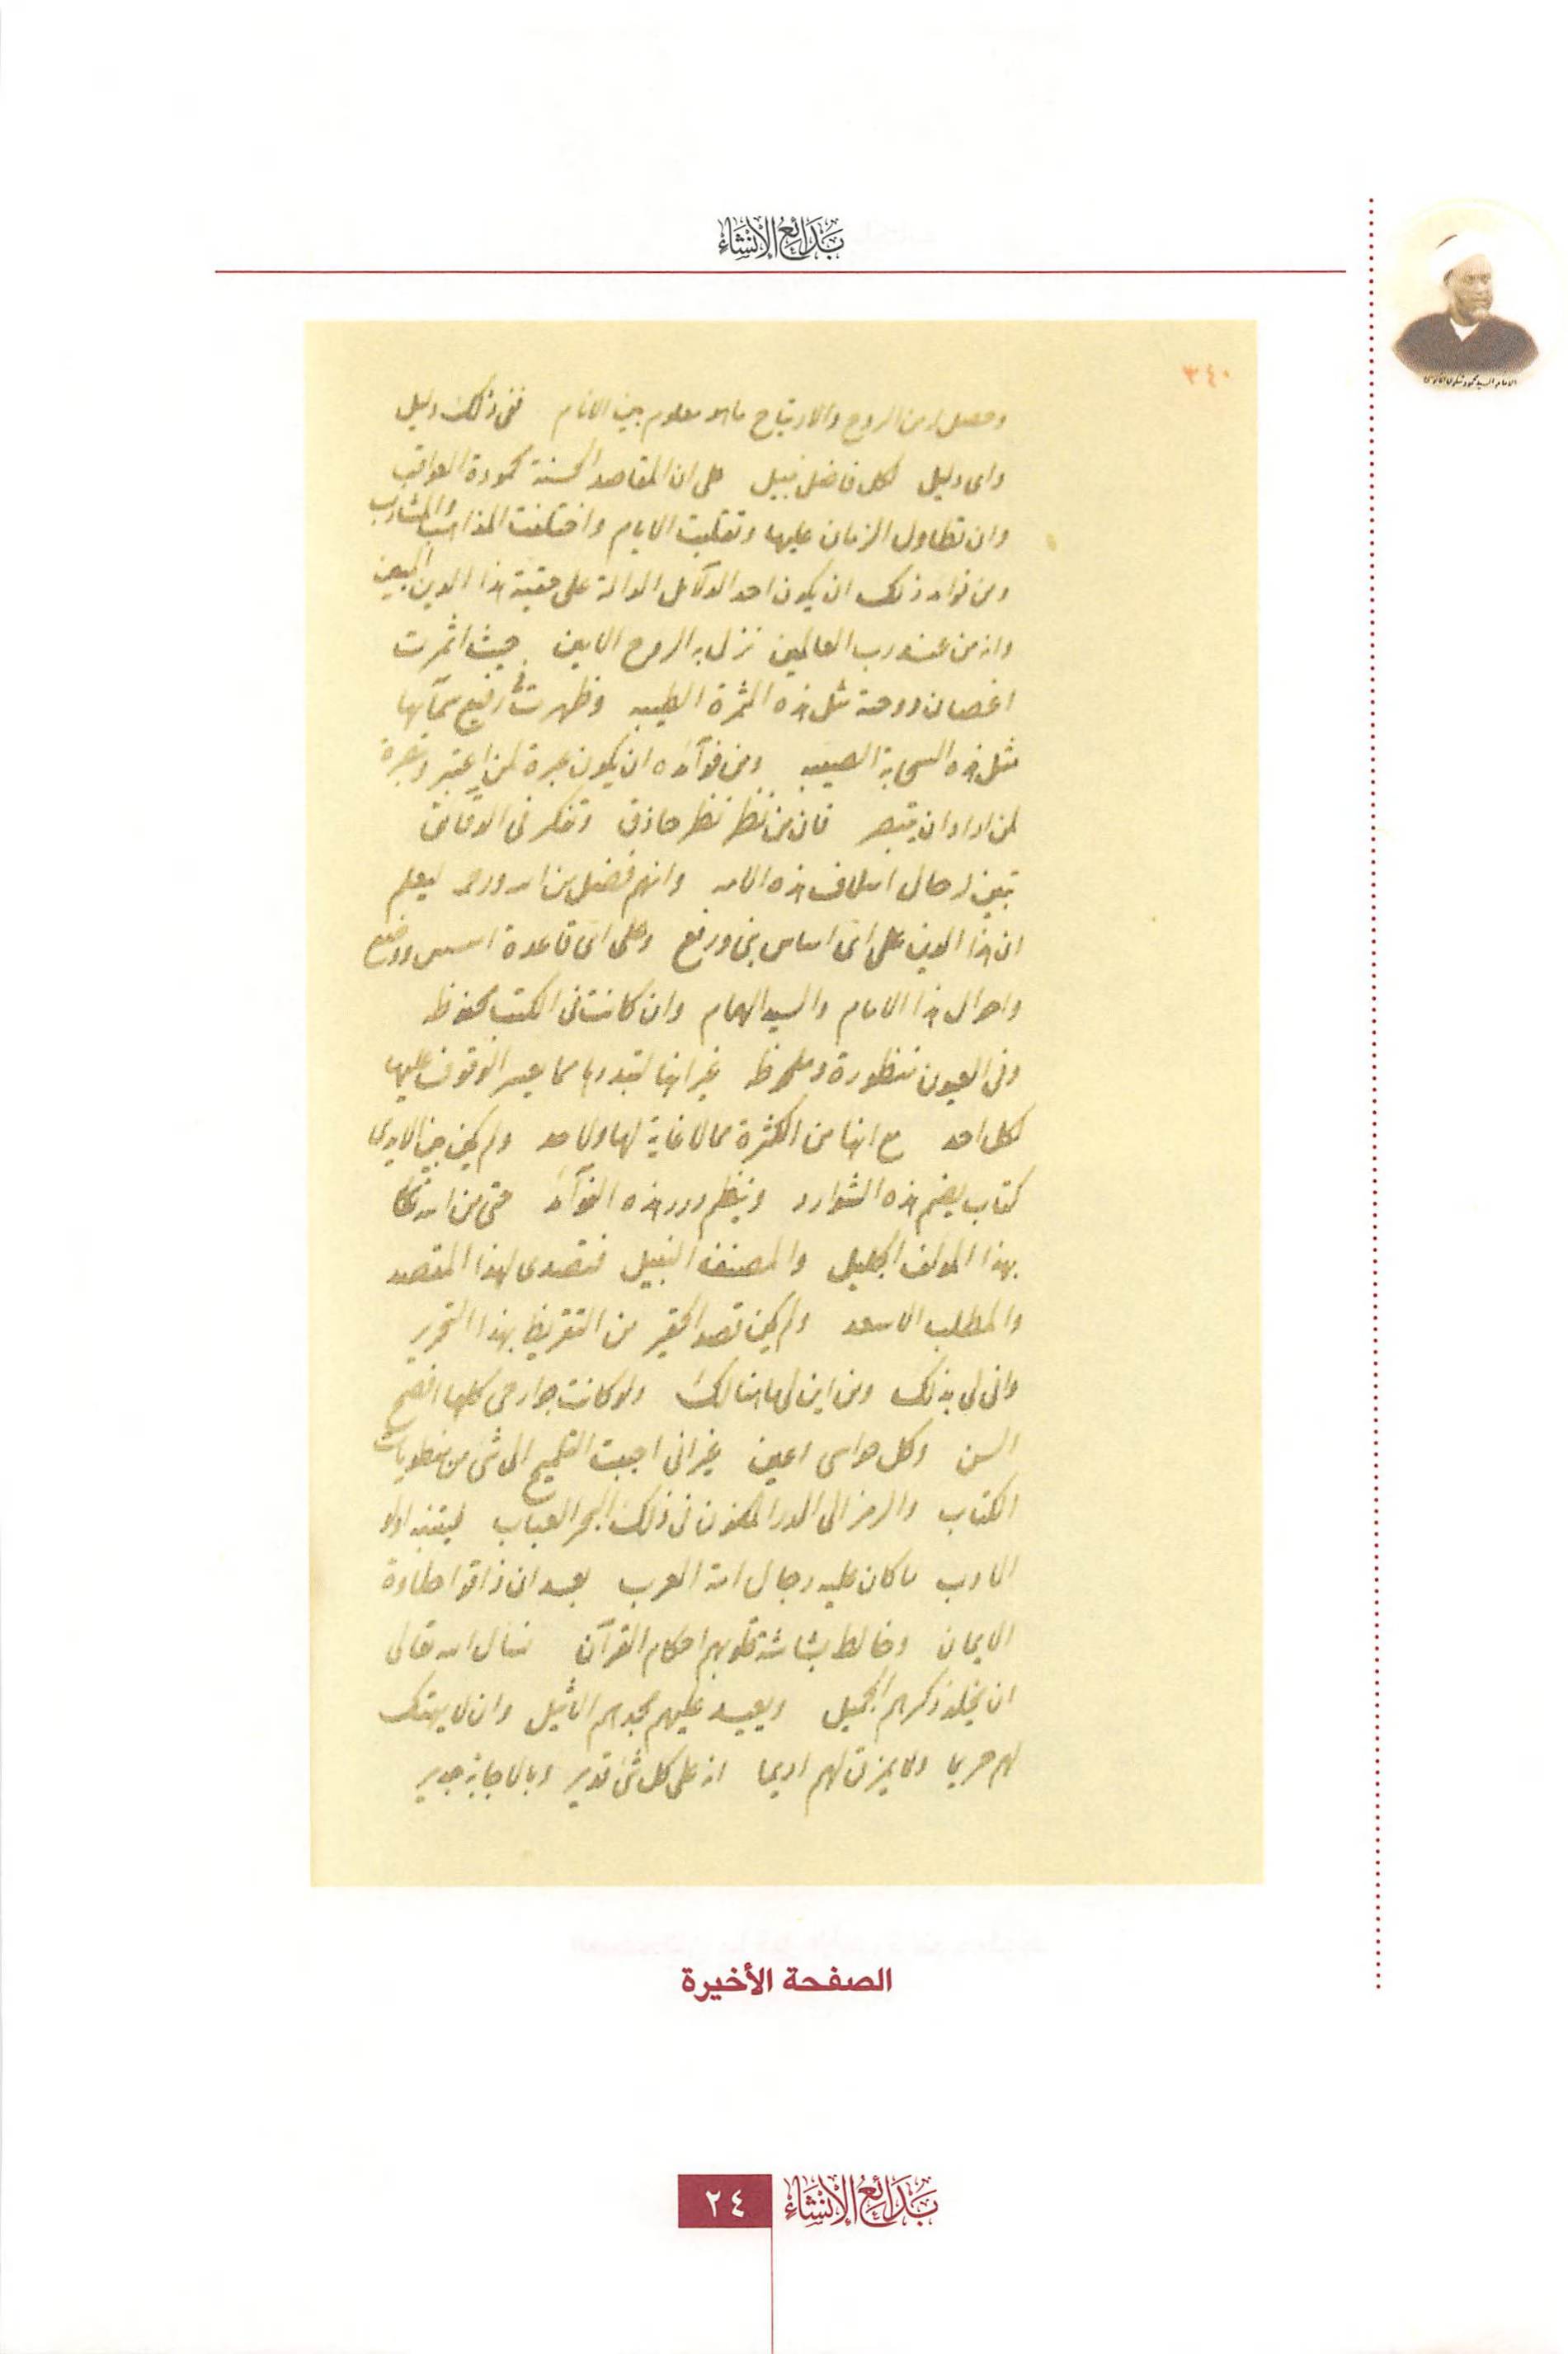 بَدَائِعُ الْإِنْشَاء
الامام السيد محمود شكري الالوسي
٣٤٠
وحصل له من الروح والارتياح ما هو معلوم بين الانام ففى ذلك دليل
واى دليل لكل فاضل نبيل على ان المقاصد الحسنة محمودة العواقب
وان تطاول الزمان عليها وتقلبت الايام واختلفت المذاهب والمشارب
ومن فوائد ذلك ان يكون احد الدلائل الدالة على حقية هذا الدين المبين
وانه من عند رب العالمين نزل به الروح الامين حيث اثمرت
اغصان دوحته مثل هذه الثمرة الطيبه وظهرت فى رفيع سمآئها
مثل هذه السحابة الصيبه ومن فوآئده ان يكون عبرة لمن اعتبر وتبصرة
لمن اراد ان يتبصر فان من نظر نظر حاذق وتفكر فى الدقائق
تبين له حال اسلاف هذه الامه وانهم فضل من الله ورحمه ليعلم
ان هذا الدين على اى اساس بنى ورفع وعلى اى قاعدة اسس ووضع
واحوال هذا الامام والسيد الهمام وان كانت فى الكتب محفوظه
وفى العيون منظورة وملحوظه غير انها لتبددها مما عسر الوقوف عليها
لكل احد مع انها من الكثرة مما لا غاية لها ولا حد ولم يكن بين الايدى
كتاب يضم هذه الشوارد وينظم درر هذه الفوآئد حتى من الله تعالى
بهذا المؤلف الجليل والمصنف النبيل فتصدى لهذا المقصد
والمطلب الاسعد ولم يكن قصد الحقير من التقريظ بهذا التحرير
وانى لى بذلك ومن اين لها هنالك ولو كانت جوارحى كلها افصح
السن وكل حواسى اعين غير انى احببت التلميح الى شئ من منطويات
الكتاب والرمز الى الدر المكنون فى ذلك البحر العباب ليتنبه اولو
الادب ما كان عليه رجال امة العرب بعد ان ذاقوا حلاوة
الايمان وخالط بشاشة قلوبهم احكام القرآن نسال الله تعالى
ان يخلد ذكرهم الجميل ويعيد عليهم مجدهم الاثيل وان لا يهتك
لهم حريما ولا يمزق لهم اديما انه على كل شئ قدير وبالاجابة جدير
الصفحة الأخيرة
بَدَائِعُ الْإِنْشَاء
٢٤